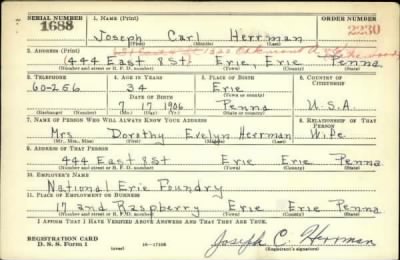 SERIAL NUMBER 1. NAME (Print) ORDER NUMBER
1688 Joseph Carl Herrman 2230
(First) (Middle) (Last)
2. ADDRESS (Print)
444 East 8 St. Erie, Erie Penna
(Number and street or R. F. D. number) (Town) (County) (State)
3. TELEPHONE 4. AGE IN YEARS 5. PLACE OF BIRTH 6. COUNTRY OF CITIZENSHIP
60-256 34 Erie
DATE OF BIRTH (Town or county)
7 17 1906 Penna U.S.A.
(Exchange) (Number) (Mo.) (Day) (Yr.) (State or country)
7. NAME OF PERSON WHO WILL ALWAYS KNOW YOUR ADDRESS 8. RELATIONSHIP OF THAT PERSON
Mrs Dorothy Evelyn Herrman Wife
(Mr., Mrs., Miss) (First) (Middle) (Last)
9. ADDRESS OF THAT PERSON
444 East 8 St Erie Erie Penna
(Number and street or R. F. D. number) (Town) (County) (State)
10. EMPLOYER'S NAME
National Erie Foundry
11. PLACE OF EMPLOYMENT OR BUSINESS
17 and Raspberry Erie Erie Penna
(Number and street or R. F. D. number) (Town) (County) (State)
I AFFIRM THAT I HAVE VERIFIED ABOVE ANSWERS AND THAT THEY ARE TRUE.
REGISTRATION CARD
D. S. S. Form 1 (over) 16-17105 Joseph C. Herrman
(Registrant's signature)